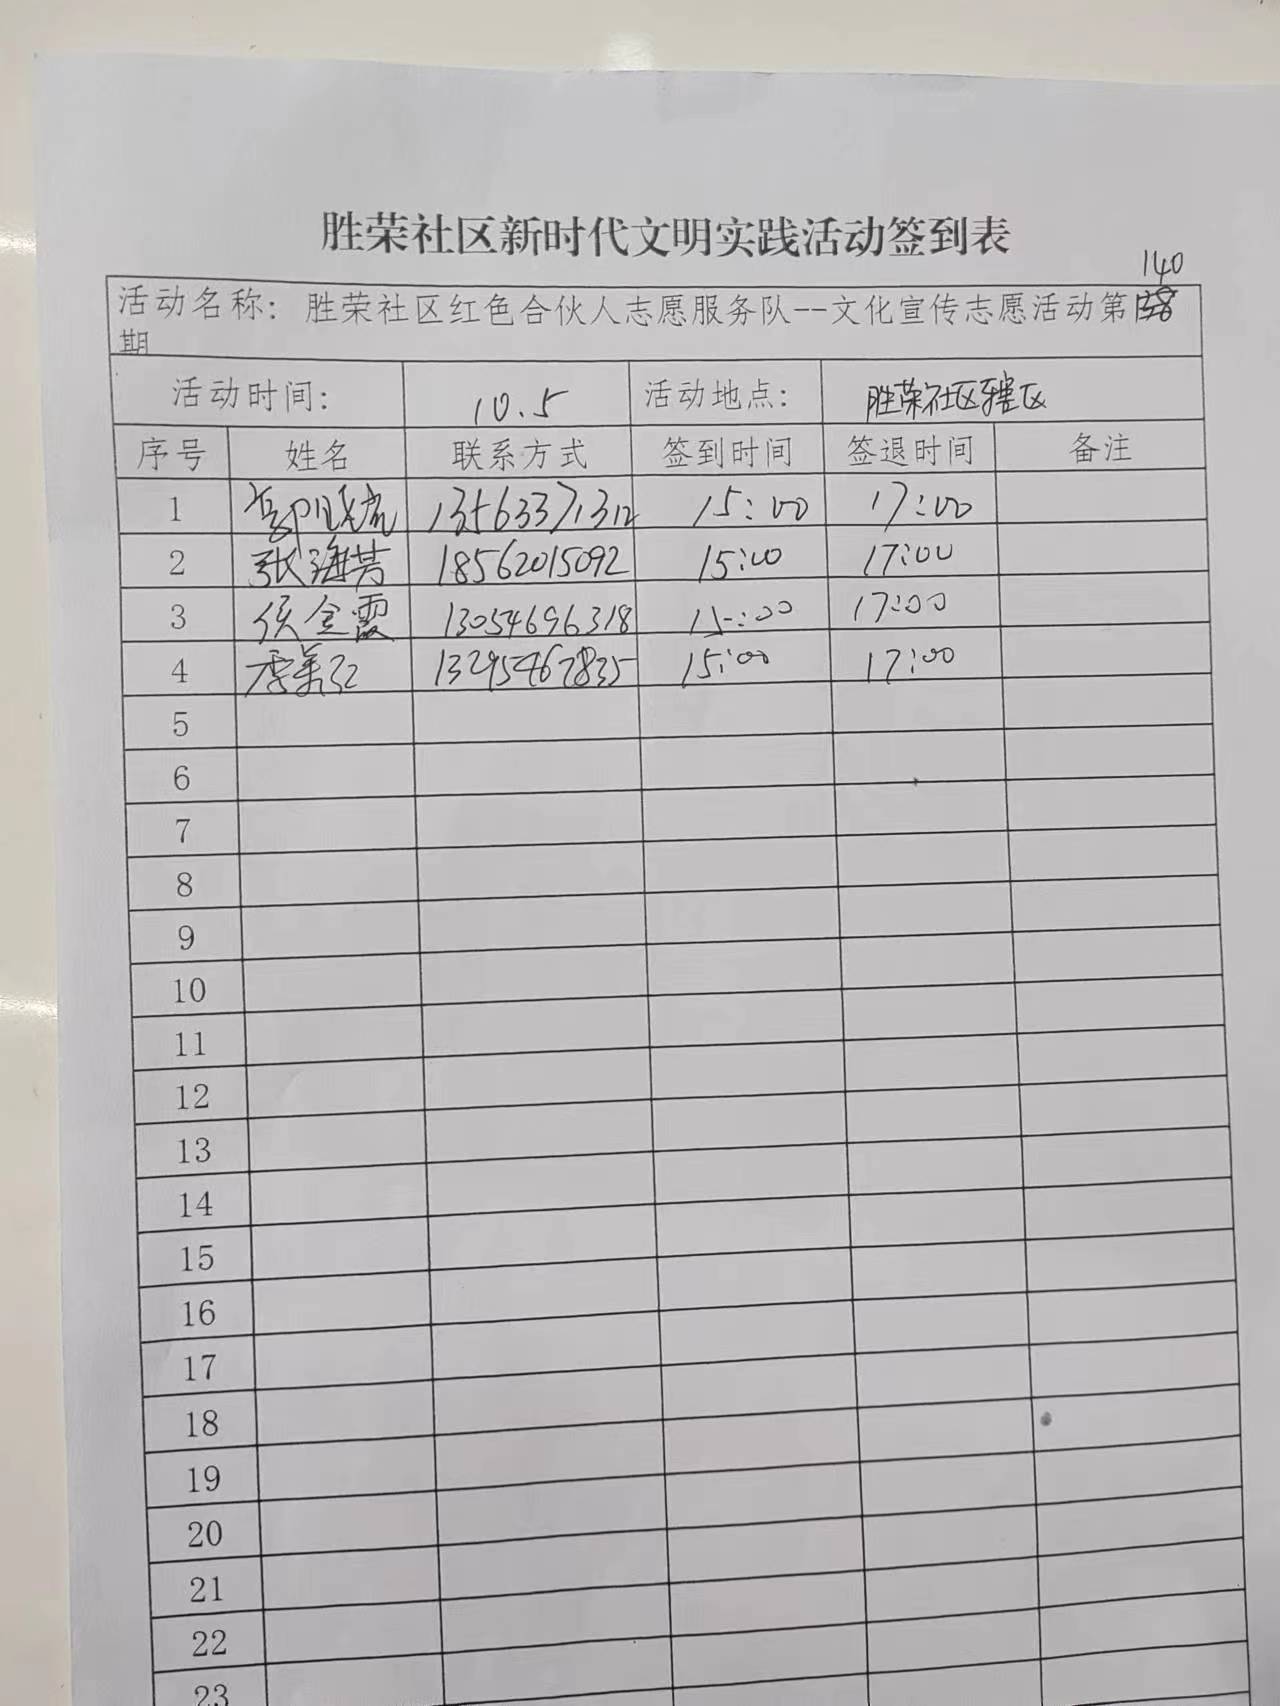 胜荣社区新时代文明实践活动签到表
140
活动名称：胜荣社区红色合伙人志愿服务队--文化宣传志愿活动第
期
活动时间： 10.5 活动地点： 胜荣社区辖区
序号 姓名 联系方式 签到时间 签退时间 备注
1 13563371312 15:00 17:00
2 张海芳 18562015092 15:00 17:00
3 侯金霞 13054696318 15:00 17:00
4 李美江 13295467835 15:00 17:00
5
6
7
8
9
10
11
12
13
14
15
16
17
18
19
20
21
22
23